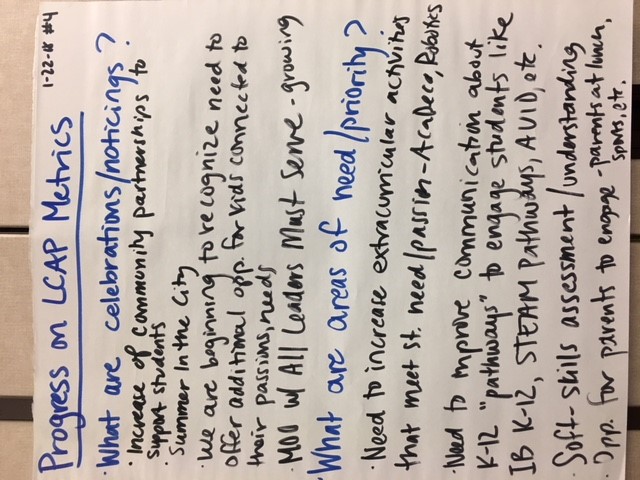 1-22-18 #4
Progress on LCAP Metrics
· What are celebrations/noticings?
· Increase of community partnerships to
support students
· Summer In the City
· We are beginning to recognize need to
offer additional opp. for kids connected to
their passions, needs
· MOU w/ All Leaders Must Serve - growing
· What are areas of need/priority?
· Need to increase extracurricular activities
that meet st. need/passion - AcaDeca, Robotics
· Need to improve communication about
K-12 "pathways" to engage students like
IB K-12, STEAM Pathways, AVID, etc.
· Soft-skills assessment/understanding
· Opp. for parents to engage - parents at lunch,
sports, etc.